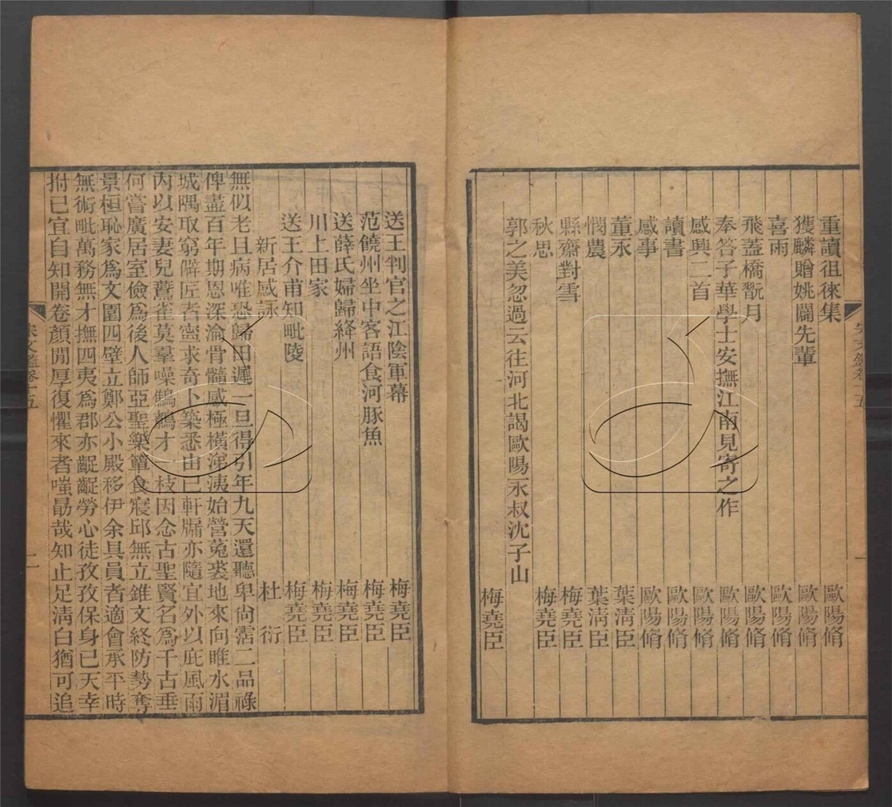 重讀徂徠集　歐陽脩
獲麟贈姚闢先輩　歐陽脩
喜雨　歐陽脩
飛蓋橋翫月　歐陽脩
奉答子華學士安撫江南見寄之作　歐陽脩
感興二首　歐陽脩
讀書　歐陽脩
感事　歐陽脩
董永　葉清臣
憫農　葉清臣
縣齋對雪　梅堯臣
秋思　梅堯臣
郭之美忽過云往河北謁歐陽永叔沈子山
梅堯臣
送王判官之江陰軍幕　梅堯臣
范饒州坐中客語食河豚魚　梅堯臣
送薛氏婦歸絳州　梅堯臣
川上田家　梅堯臣
送王介甫知毗陵　梅堯臣
新居感詠　杜衍
無似老且病唯恐歸田遲一旦得引年九天還聽卑尙霑二品祿
俾盡百年期恩深淪骨髓感極橫涕洟始營菟裘地來向睢水湄
城隅取窮僻匠者寧求奇卜築悉由已軒牖亦隨宜外以庇風雨
內以安妻兒鷰雀莫羣噪鷦鷯才一枝因念古聖賢名爲千古垂
何嘗廣居室儉爲後人師亞聖樂簞食寢邱無立錐文終防勢奪
景桓恥家爲文園四壁立鄭公小殿移伊余具員者適會承平時
無術毗萬務無才撫四夷爲郡亦齪齪勞心徒孜孜保身已天幸
拊已宜自知開卷顏閒厚復懼來者嗤勗哉知止足淸白猶可追
宋文鑑卷十五
二